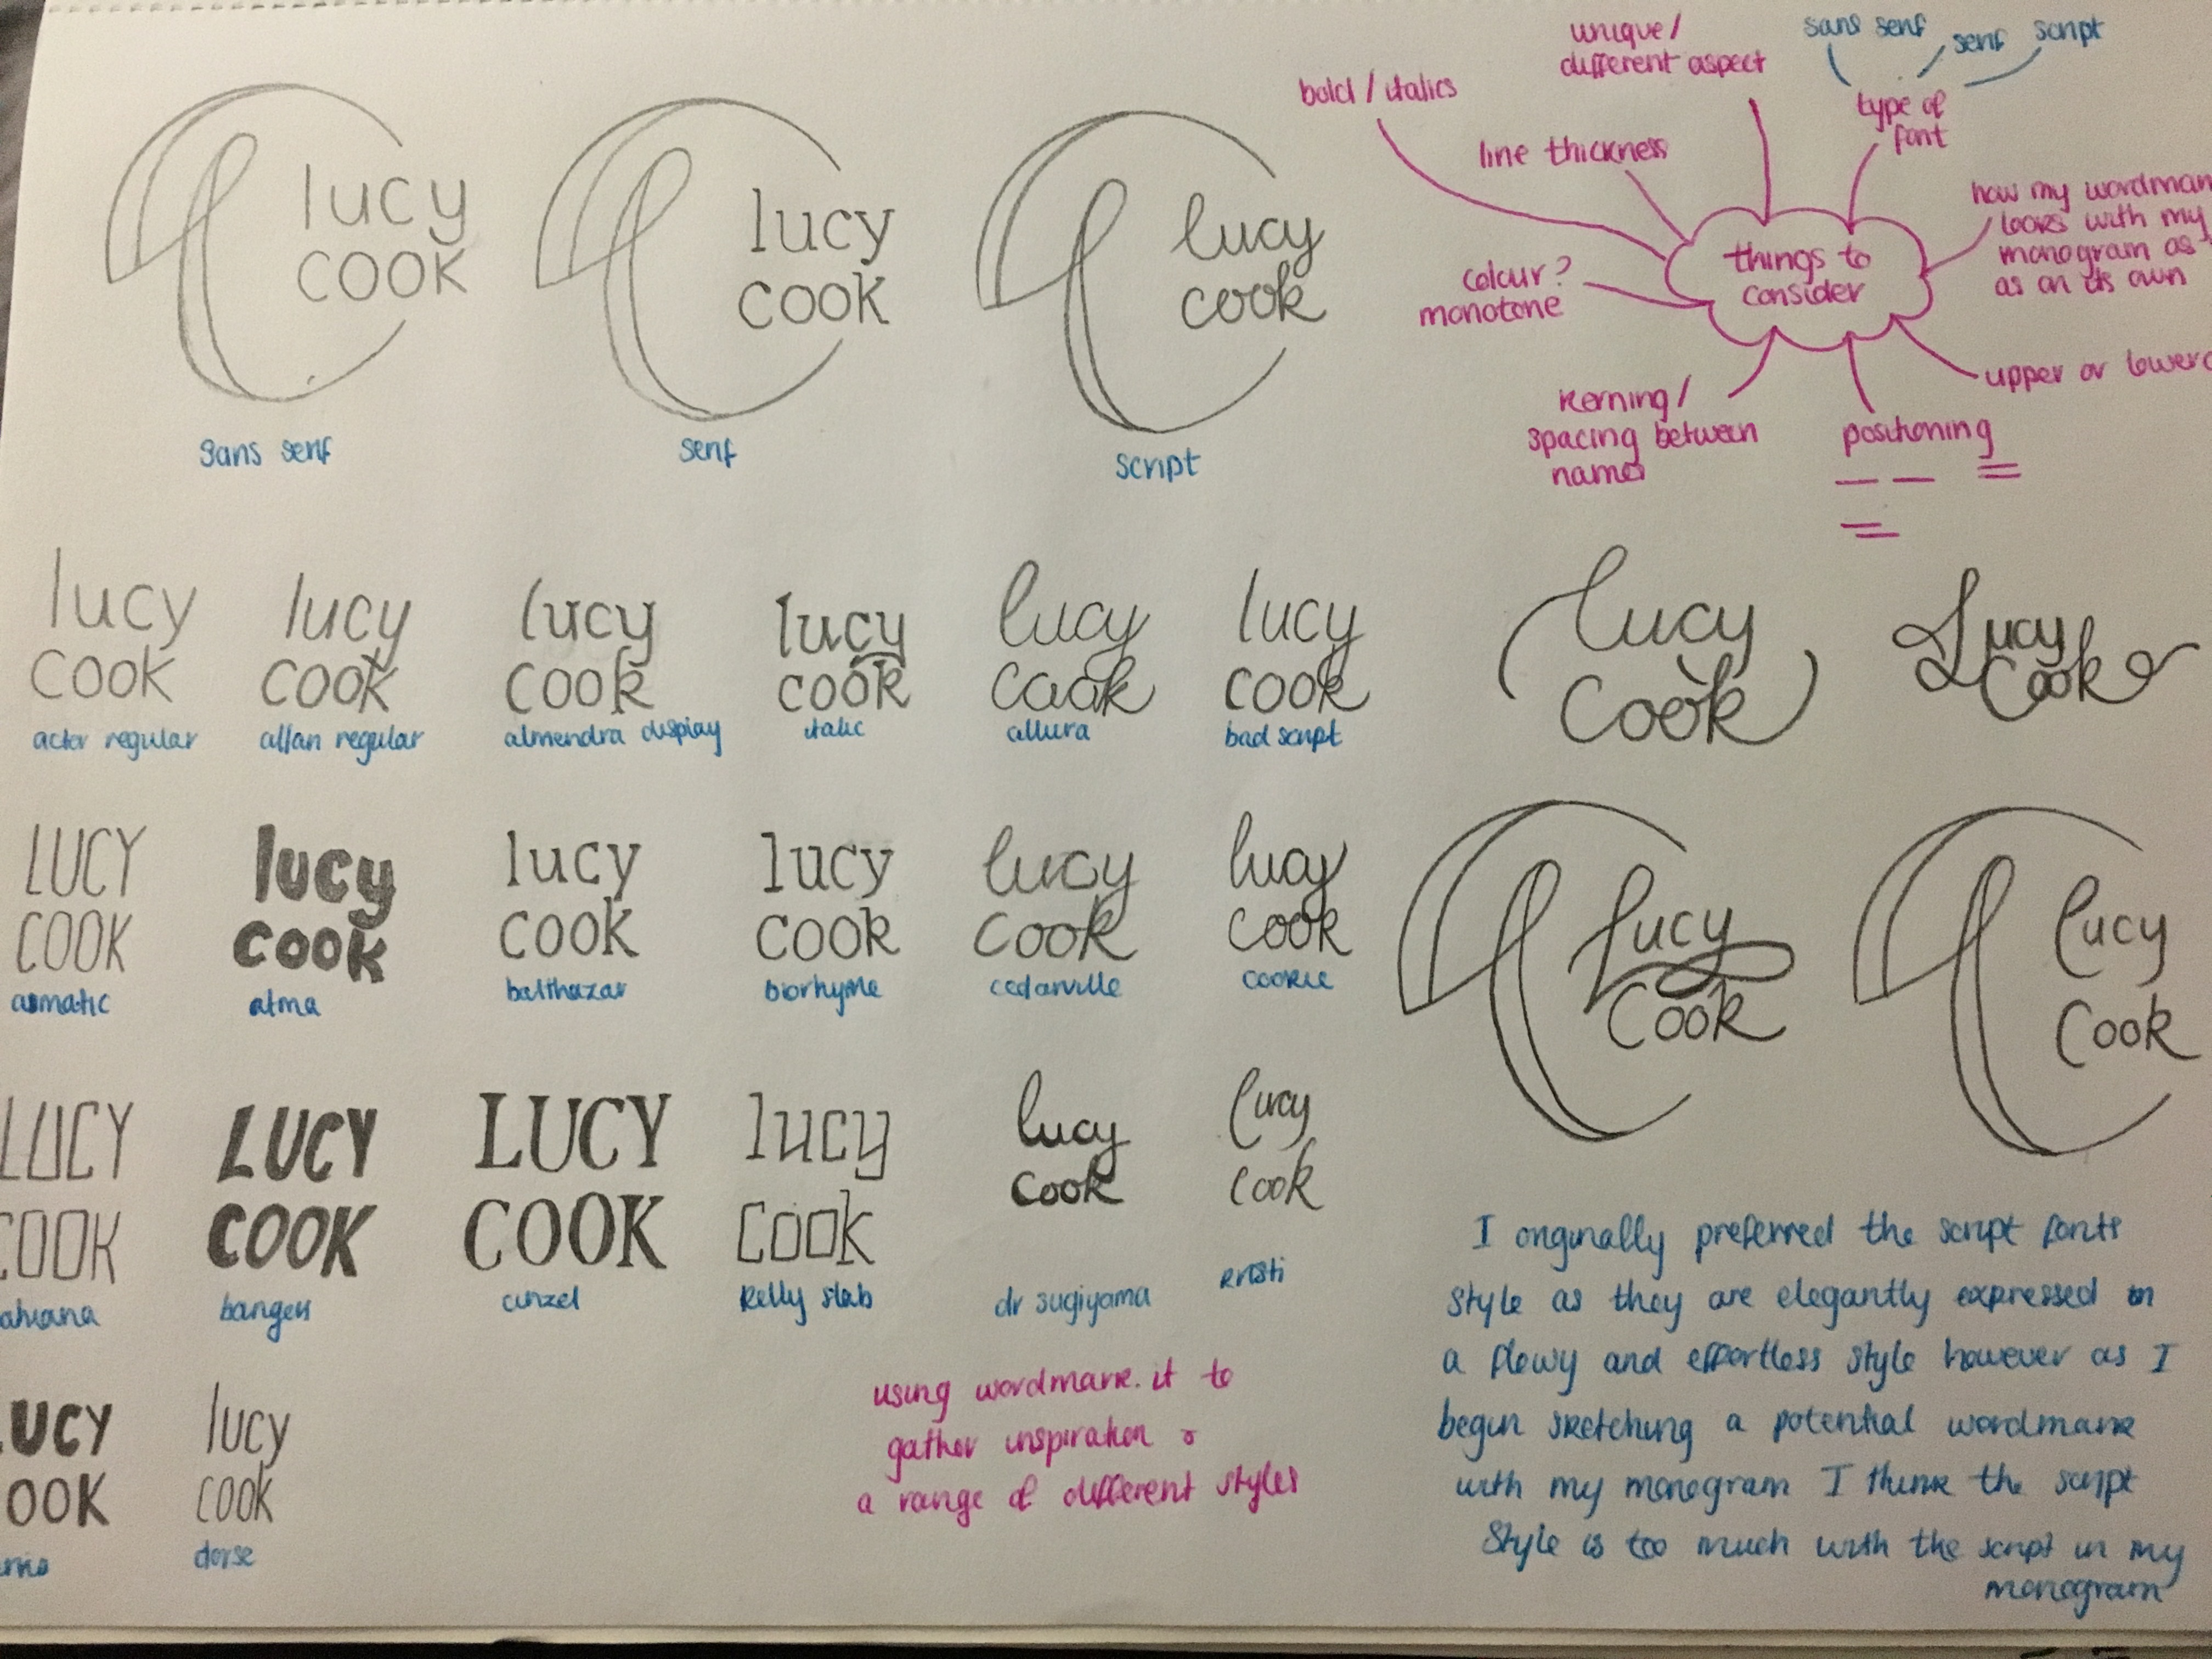 lucy
cook
sans serif
lucy
cook
serif
lucy
cook
script
things to
consider
bold / italics
line thickness
unique/
different aspect
sans serif
serif
script
type of
font
how my
looks with my
monogram as
as on its own
upper or
positioning
kerning/
spacing between
names
colour?
monotone
lucy
cook
actor regular
lucy
cook
allan regular
lucy
cook
almendra display
lucy
cook
italic
lucy
cook
allura
lucy
cook
bad script
Lucy
Cook
Lucy
Cook
LUCY
COOK
lucy
cook
atma
lucy
cook
balthazar
lucy
cook
biorhyme
lucy
cook
cedarville
lucy
cook
cookie
Lucy
Cook
Lucy
Cook
LUCY
COOK
LUCY
COOK
bangers
LUCY
COOK
cinzel
lucy
cook
kelly slab
lucy
cook
dr sugiyama
Lucy
Cook
UCY
OOK
lucy
cook
dorse
using wordmark.it to
gather inspiration &
a range of different styles
I originally preferred the script fonts
style as they are elegantly expressed in
a flowy and effortless style however as I
begun sketching a potential wordmark
with my monogram I think the script
style is too much with the script in my
monogram